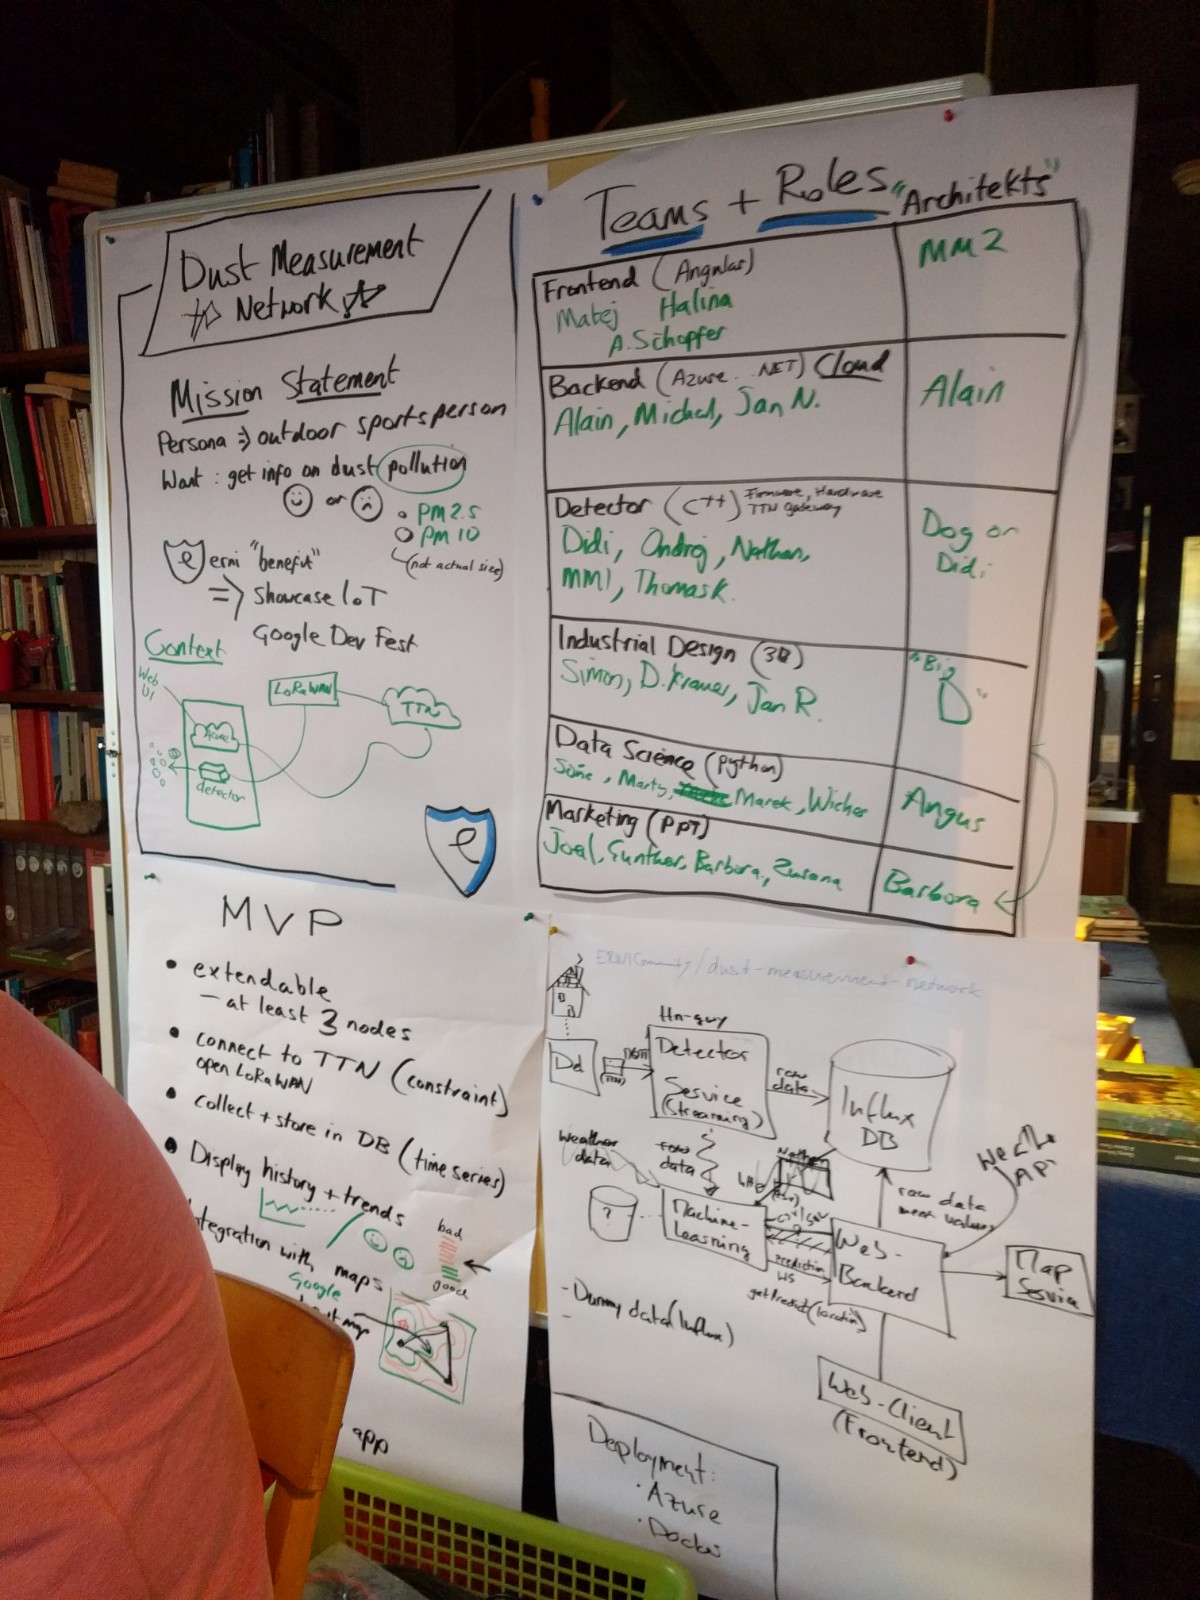 Dust Measurement
Network
Mission Statement
Persona => outdoor sportsperson
Want : get info on dust pollution
or
PM 2.5
PM 10
(not actual size)
e erni "benefit"
=> Showcase IoT
Google Dev Fest
Context
Web
UI
LoRaWAN
TTN
Azure
detector
e
Teams + Roles
"Architekts"
Frontend (Angular)
Matej Halina
A. Schopfer
MM2
Backend (Azure .. .NET) Cloud
Alain, Michal, Jan N.
Alain
Detector (C++) Firmware, Hardware
TTN Gateway
Didi, Ondrej, Nathan,
MM1, Thomas K.
Dog or
Didi
Industrial Design (3D)
Simon, D. Kramer, Jan R.
"Big
D"
Data Science (python)
Marty, Marek, Wicher
Angus
Marketing (PPT)
Joel, Gunther, Barbora, Zuzana
Barbora
MVP
• extendable
– at least 3 nodes
• connect to TTN (constraint)
open LoRaWAN
• collect + store in DB (time series)
• Display history + trends
integration with maps
Google
bad
good
app
ERNICommunity/dust-measurement-network
Detector
Service
(Streaming)
(TTN)
raw
data
Influx
DB
Weather
data
raw
data
Nathan
Weather
API
raw data
?
Machine-
Learning
Web-
Backend
Map
Service
prediction
WS
getPredict(location)
- Dummy data (Influx)
-
Web-Client
(Frontend)
Deployment:
· Azure
· Docker